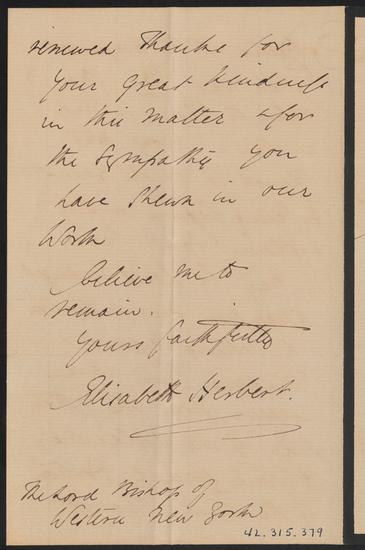 renewed Thanks for
your great kindness
in this matter & for
the sympathy you
have shewn in our
Work
believe me to
remain.
yours faithfully
Elisabeth Herbert.
The Lord Bishop of
Western New York
42.315.379